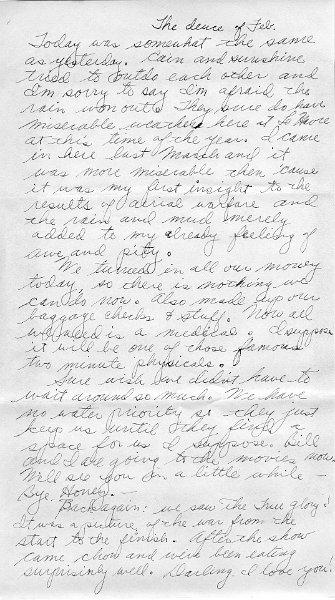 The deuce of Feb.
Today was somewhat the same
as yesterday. Rain and sunshine
tried to outdo each other and
I'm sorry to say I'm afraid the
rain won out. They sure do have
miserable weather here at Le Havre
at this time of the year. I came
in here last March and it
was more miserable then 'cause
it was my first insight to the
results of aerial warfare and
the rain and mud merely
added to my already feeling of
awe and pity.
We turned in all our money
today, so there is nothing we
can do now. Also made up our
baggage checks & stuff. Now all
we need is a medical. I suppose
it will be one of those famous
two minute physicals.
Sure wish we didn't have to
wait around so much. We have
no water priority so they just
keep us until they find a
space for us I suppose. Bill
and I are going to the movies now.
We'll see you in a little while
Bye Honey. —
Back again: we saw "The True Glory"
It was a picture of the war from the
start to the finish. After the show
came chow and we've been eating
surprisingly well. Darling I love you!